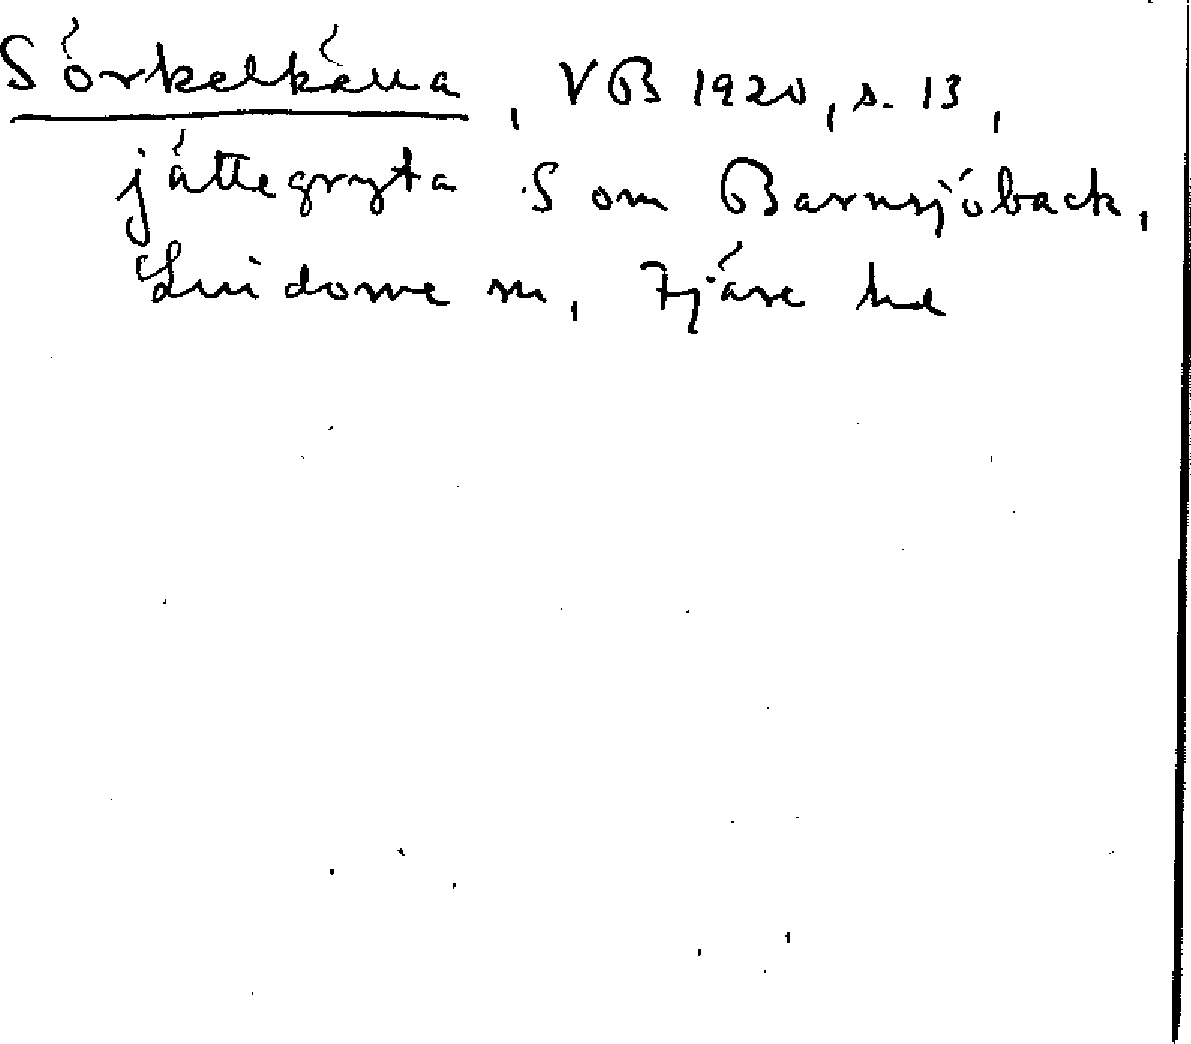 Sörkelkälla, VB 1920, s. 13,
jättegryta S om Barnsjöbäck,
Lindome sn, Fjäre hd